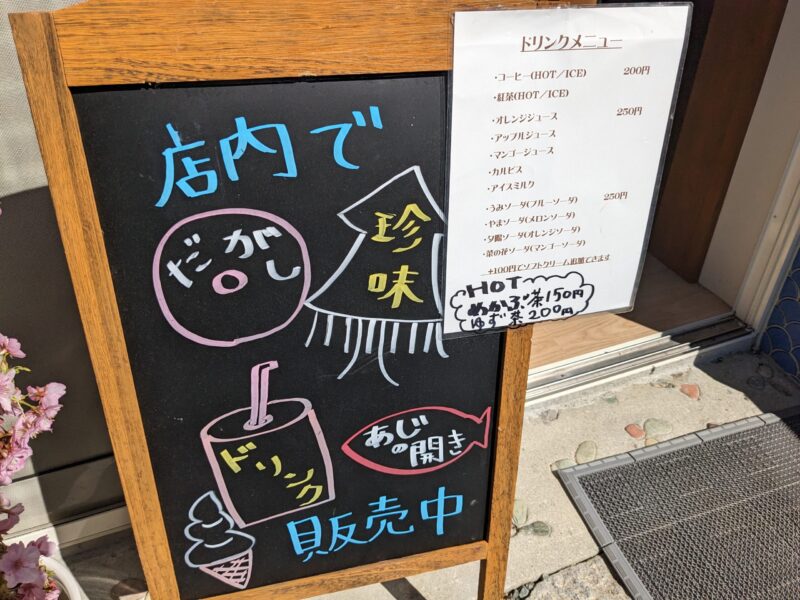 店内で
だがし
珍味
ドリンク
あじの開き
販売中
ドリンクメニュー
・コーヒー(HOT/ICE) 200円
・紅茶(HOT/ICE)
・オレンジジュース 250円
・アップルジュース
・マンゴージュース
・カルピス
・アイスミルク
・うみソーダ(ブルーソーダ) 250円
・やまソーダ(メロンソーダ)
・夕陽ソーダ(オレンジソーダ)
・菜の花ソーダ(マンゴーソーダ)
+100円でソフトクリーム追加できます
HOT
めかぶ茶150円
ゆず茶200円